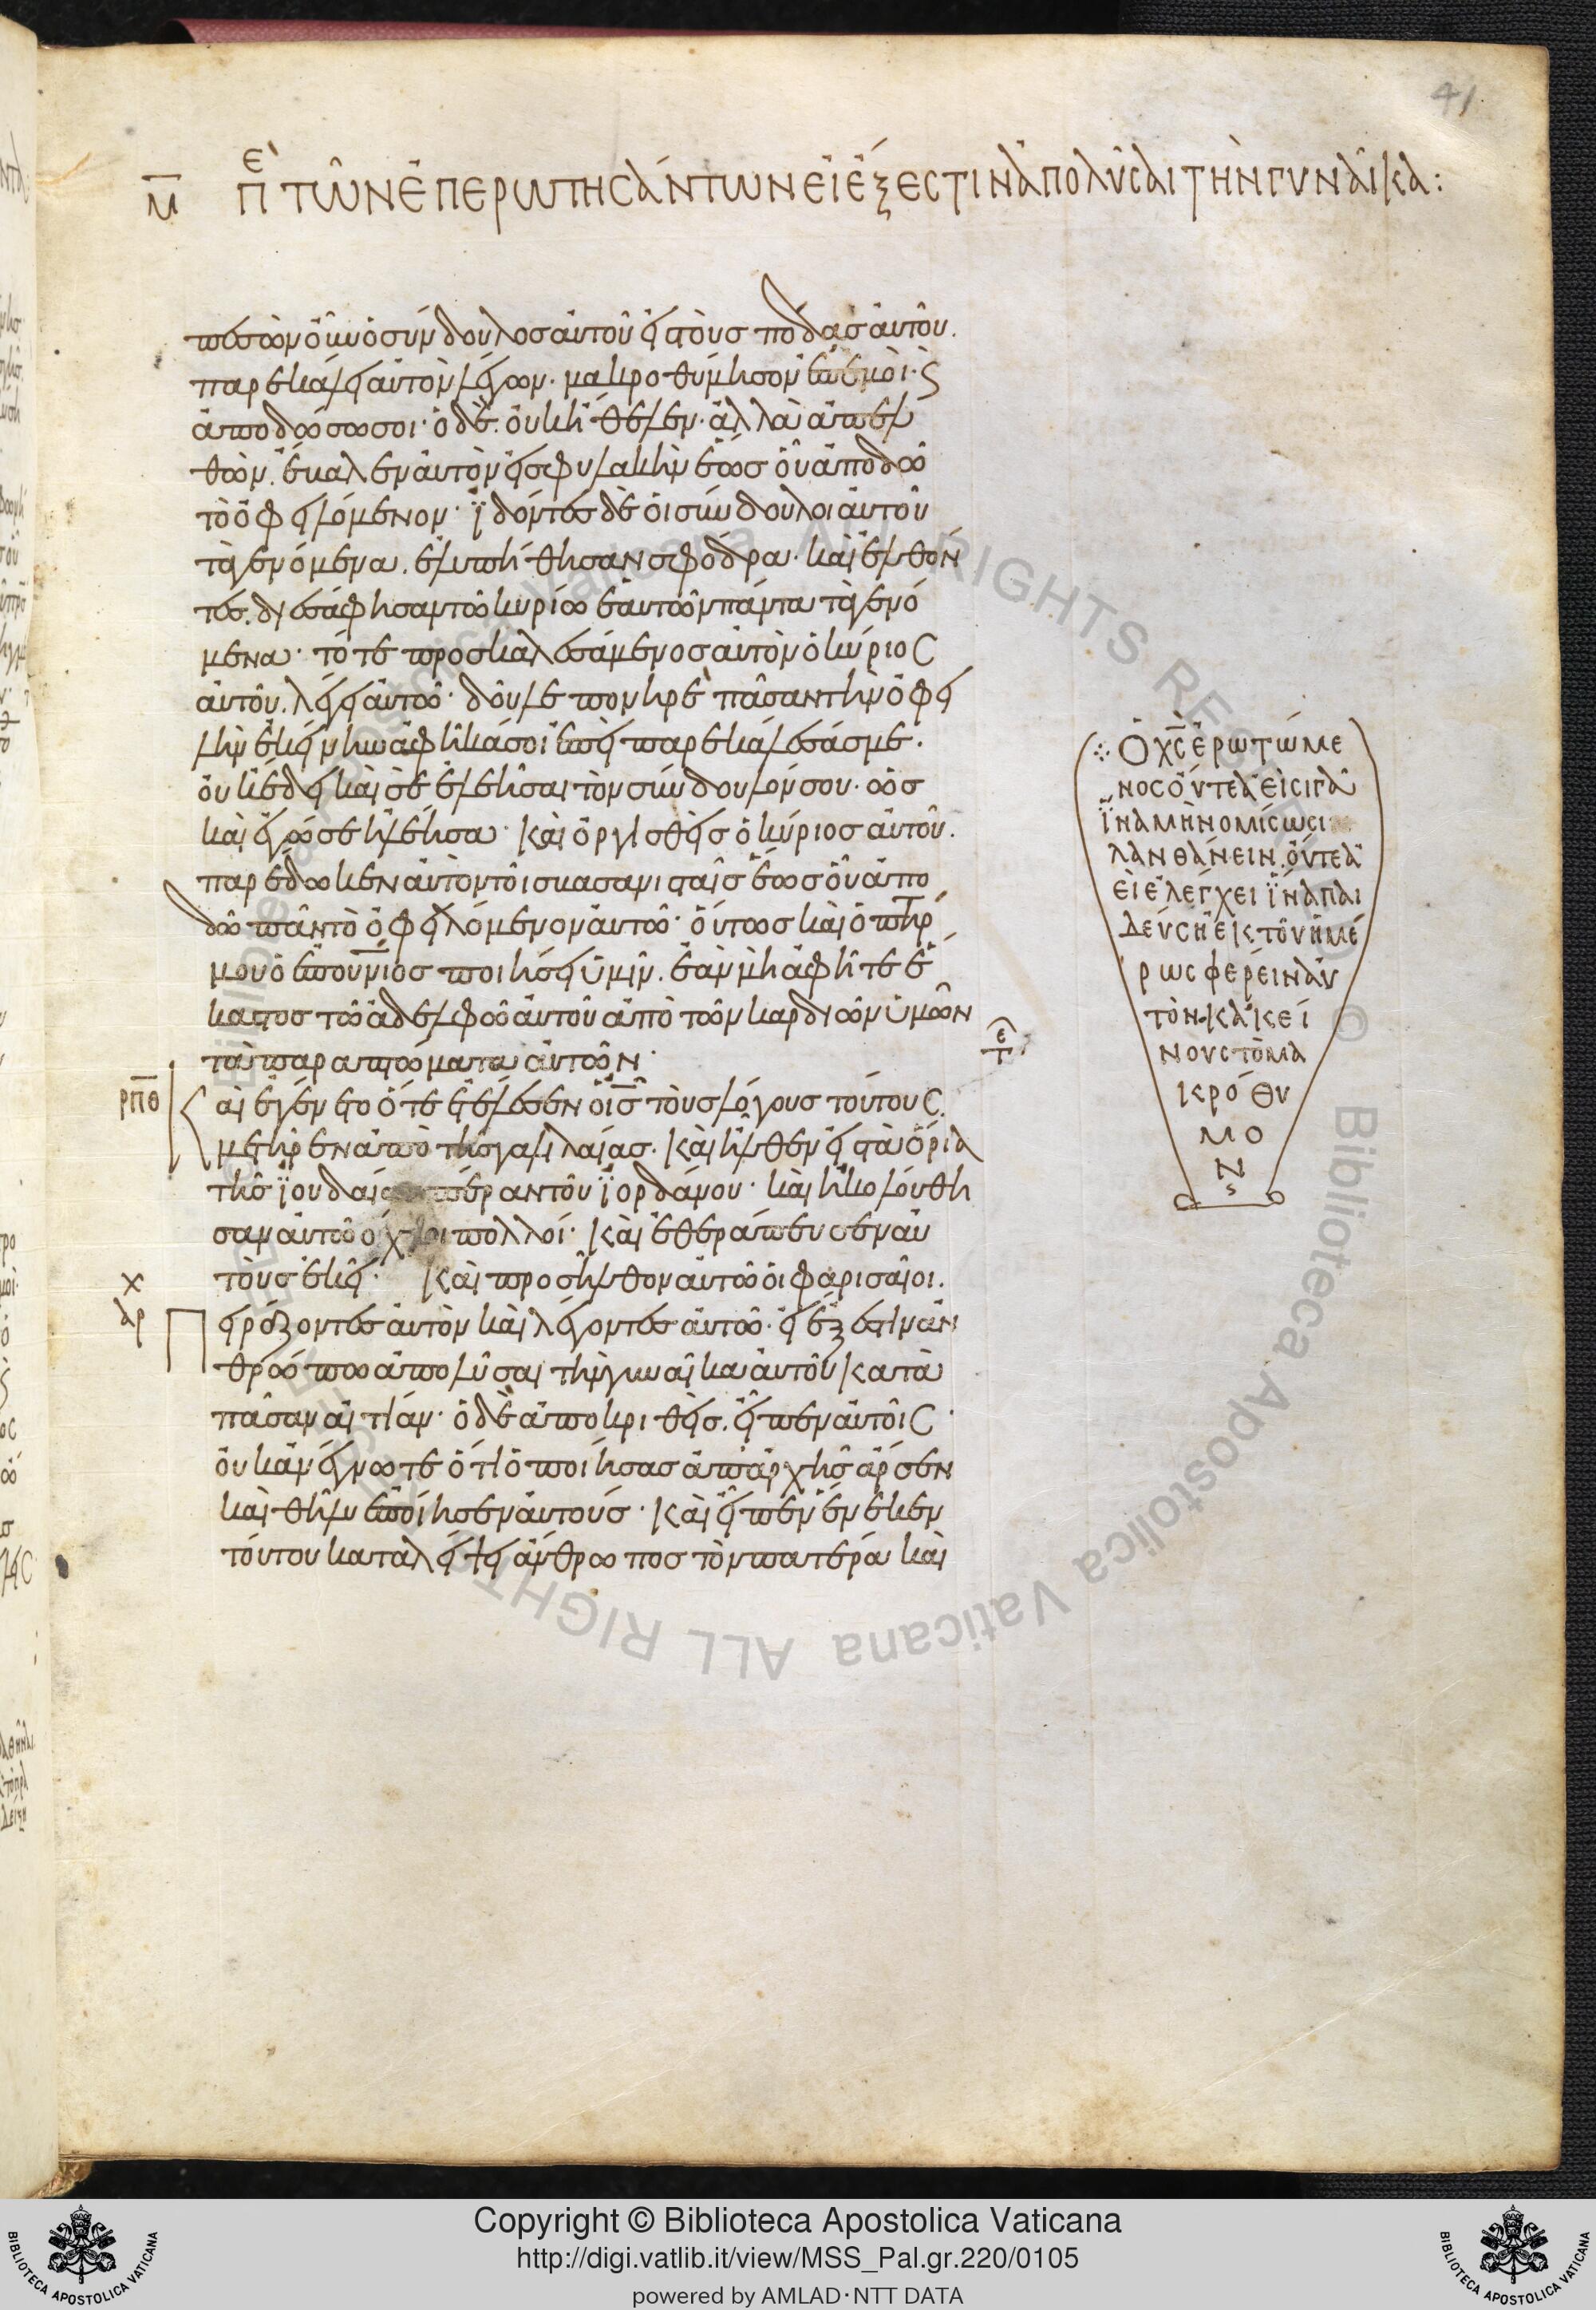 41
μ̅ πὲ τῶν ἐπερωτησάντων εἰ ἔξεστιν ἀπολῦσαι τὴν γυναῖκα:
πεσὼν οὖν ὁ σύνδουλος αὐτοῦ εἰς τοὺς πόδας αὐτοῦ.
παρεκάλει αὐτὸν λέγων· μακροθύμησον ἐπ' ἐμοὶ· ϛ
ἀποδώσω σοι· ὁ δὲ οὐκ ἤθελεν· ἀλλὰ ἀπελ
θὼν. ἔβαλεν αὐτὸν εἰς φυλακὴν ἕως οὗ ἀποδῶ
τὸ ὀφειλόμενον· ἰδόντες δὲ οἱ σύνδουλοι αὐτοῦ
τὰ γενόμενα. ἐλυπήθησαν σφόδρα· καὶ ἐλθόν
τες. διεσάφησαν τῶ κυρίω ἑαυτῶν πάντα τὰ γενό
μενα· τότε προσκαλεσάμενος αὐτὸν ὁ κύριος
αὐτοῦ. λέγει αὐτῶ· δοῦλε πονηρὲ πᾶσαν τὴν ὀφει
λὴν ἐκείνην ἀφῆκά σοι ἐπεὶ παρεκάλεσάς με.
οὐκ ἔδει καὶ σὲ ἐλεῆσαι τὸν σύνδουλόν σου· ὡς
καὶ ἐγώ σε ἠλέησα· καὶ ὀργισθεὶς ὁ κύριος αὐτοῦ.
παρέδωκεν αὐτὸν τοῖς βασανισταῖς ἕως οὗ ἀπο
δῶ πᾶν τὸ ὀφειλόμενον αὐτῶ· οὕτως καὶ ὁ π̅η̅ρ̅
μου ὁ ἐπουνιος ποιήσει ὑμῖν. ἐὰν μὴ ἀφῆτε ἕ
καστος τῶ ἀδελφῶ αὐτοῦ ἀπὸ τῶν καρδιῶν ὑμῶν
τὰ παραπτώματα αὐτῶν·
ρπθ αὶ ἐγένετο ὅτε ἐτέλεσεν ὁ ι̅ς̅ τοὺς λόγους τούτους.
μετῆρεν ἀπὸ τῆς γαλιλαίας. καὶ ἦλθεν εἰς τὰ ὅρια
τῆς ἰουδαίας πέραν τοῦ ἰορδάνου· καὶ ἠκολούθη
σαν αὐτῶ ὄχλοι πολλοί· καὶ ἐθεράπευσεν αὐ
τοὺς ἐκεῖ· καὶ προσῆλθον αὐτῶ οἱ φαρισαῖοι.
Π ειράζοντες αὐτὸν καὶ λέγοντες αὐτῶ· εἰ ἔξεστιν ἀν
θρώπω ἀπολῦσαι τὴν γυναῖκα αὐτοῦ κατὰ
πᾶσαν αἰτίαν· ὁ δὲ ἀποκριθεὶς. εἶπεν αὐτοῖς·
οὐκ ἀνέγνωτε ὅτι ὁ ποιήσας ἀπ' ἀρχῆς ἄρσεν
καὶ θῆλυ ἐποίησεν αὐτούς· καὶ εἶπεν ἕνεκεν
τούτου καταλείψει ἄνθρωπος τὸν πατέρα καὶ
Ὁ χ̅ς̅ ἐρωτώμε
νος οὔτε ἀεὶ σιγᾶ
ἵνα μὴ νομίσωσι
λανθάνειν. οὔτε ἀ
εὶ ἐλέγχει ἵνα παι
δεύση ἐκ τοῦ ἡμέ
ρως φέρειν αὐ
τὸν κἀκεί
νους τὸ μα
κρόθυ
μο
ν
Copyright © Biblioteca Apostolica Vaticana
http://digi.vatlib.it/view/MSS_Pal.gr.220/0105
powered by AMLAD·NTT DATA
BIBLIOTECA APOSTOLICA VATICANA
BIBLIOTECA APOSTOLICA VATICANA